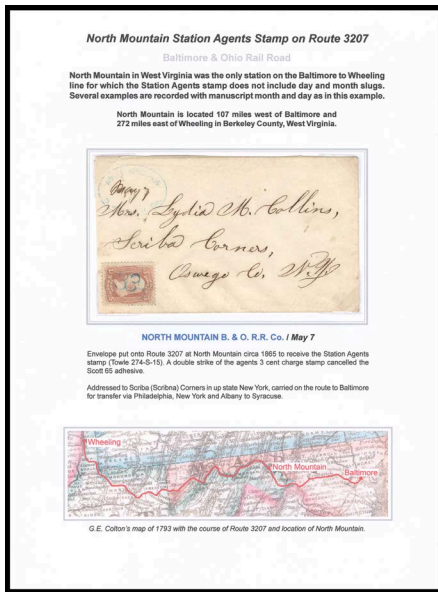 North Mountain Station Agents Stamp on Route 3207
Baltimore & Ohio Rail Road
North Mountain in West Virginia was the only station on the Baltimore to Wheeling
line for which the Station Agents stamp does not include day and month slugs.
Several examples are recorded with manuscript month and day as in this example.
North Mountain is located 107 miles west of Baltimore and
272 miles east of Wheeling in Berkeley County, West Virginia.
May 7
Mrs. Lydia M. Collins,
Scriba Corners,
Oswego Co, N.Y.
NORTH MOUNTAIN B. & O. R.R. Co. / May 7
Envelope put onto Route 3207 at North Mountain circa 1865 to receive the Station Agents
stamp (Towle 274-S-15). A double strike of the agents 3 cent charge stamp cancelled the
Scott 65 adhesive.
Addressed to Scriba (Scribna) Corners in up state New York, carried on the route to Baltimore
for transfer via Philadelphia, New York and Albany to Syracuse.
Wheeling
North Mountain
Baltimore
G.E. Colton's map of 1793 with the course of Route 3207 and location of North Mountain.